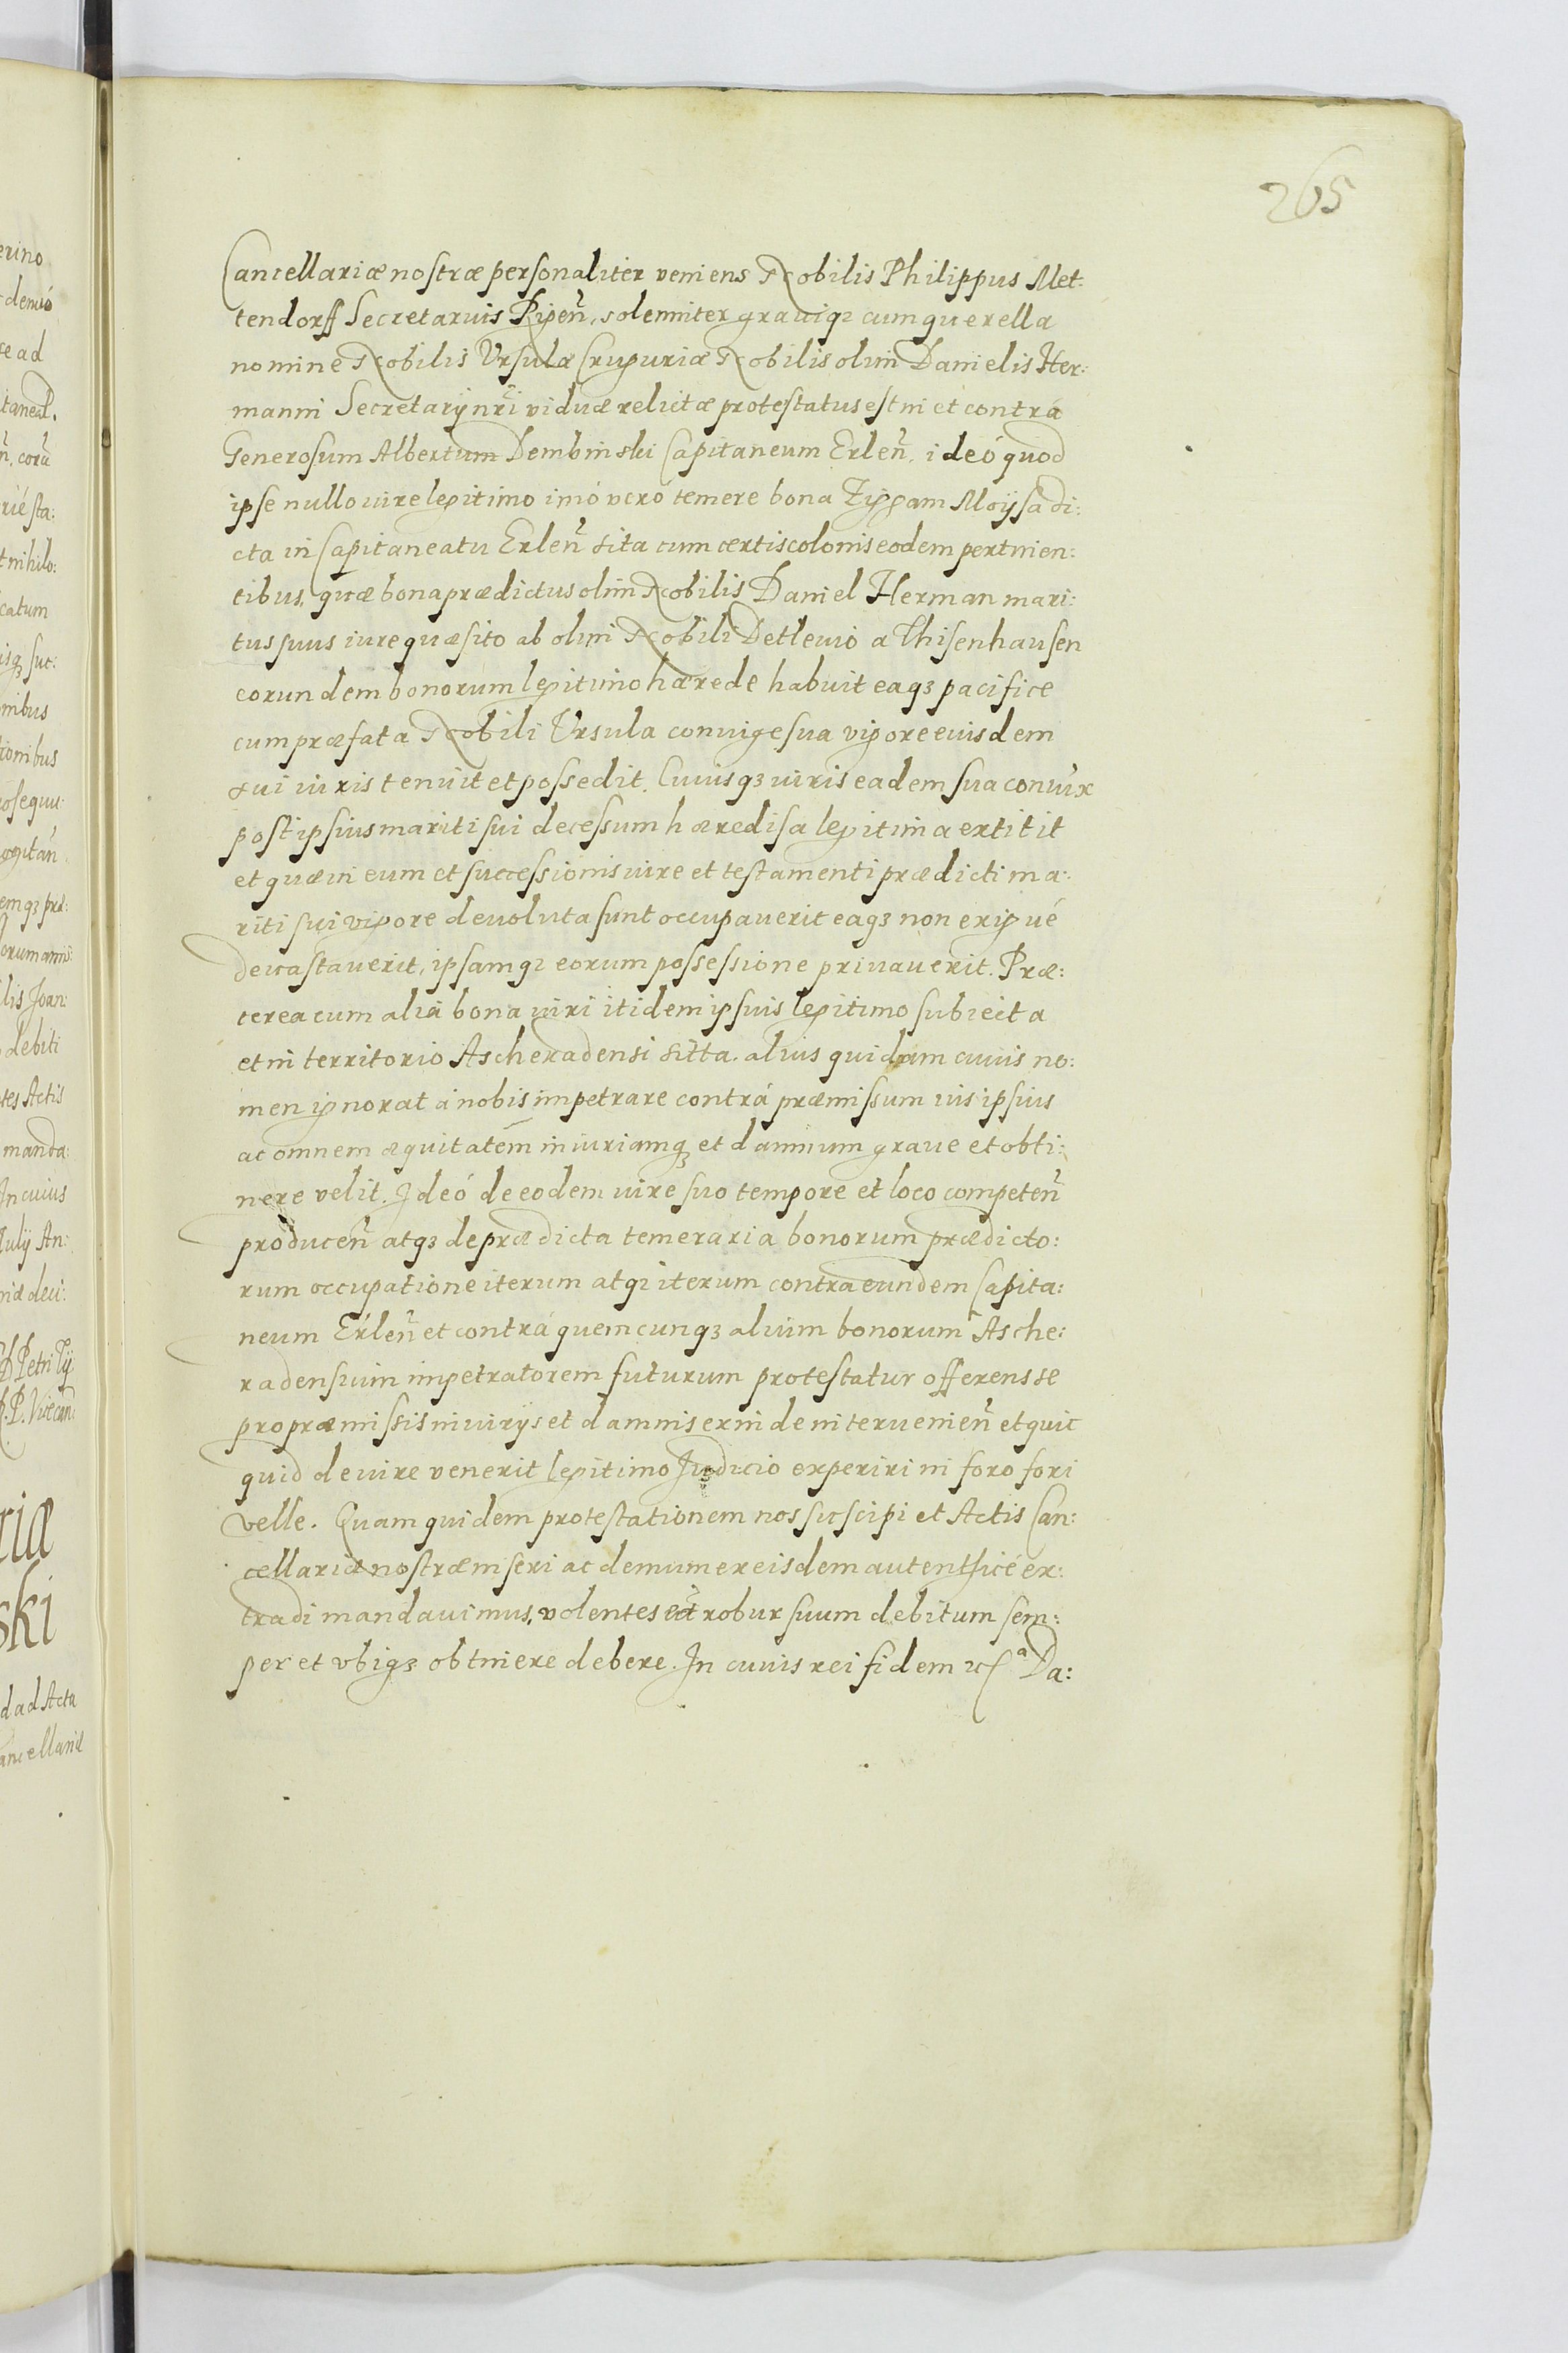 265
Cancellariæ nostræ personaliter veniens Nobilis Philippus Met:
tendorff Secretarius Rigeñ, solemniter grauiq3 cum querella
nomine Nobilis Vrsulæ Krugeriæ Nobilis olim Danielis Her:
manni Secretarij nr̃i viduæ relictæ protestatus est in et contrá
Generosum Albertum Dembinski Capitaneum Erleñ. ideó quod
ipse nullo iure legitimo imó veró temere bona Moÿsa di:
cta in Capitaneatu Erleñ sita cum certis colonis eodem pertinen:
tibus, quæ bona prædictus olim Nobilis Daniel Herman mari:
tus suus iure quæsito ab olim Nobili Detleuio a Thisenhausen
eorundem bonorum legitimo hærede habuit eaq3 pacifice
cum præfata Nobili Vrsula coniuge sua vigore eiusdem
sui iuris tenuit et possedit. Cuiusq3 iuris eadem sua coniux
post ipsius mariti sui decessum hæredisa legitima extitit
et quæ in eum et successionis iure et testamenti prædicti ma:
riti sui vigore deuoluta sunt occupauerit eaq3 non exigué
deuastauerit, ipsamq3 eorum possessione priuauerit. Præ:
terea cum alia bona iuri itidem ipsius legitimo subiecta
et in territorio Ascheradensi sitta. alius quidam cuius no:
men ignorat á nobis impetrare contrá præmissum ius ipsius
ac omnem æquitatem iniuriamq3 et damnum graue et obti:
nere velit. Ideó de eodem iure suo tempore et loco competeñ
produceñ atq3 de prædicta temeraria bonorum prædicto:
rum occupatione iterum atq3 iterum contra eundem Capita:
neum Erleñ et contrá quemcunq3 alium bonorum Asche:
radensium impetratorem futurum protestatur offerens se
pro præmissis iniurijs et damnis exinde interuenieñ et quic
quid de iure venerit legitimo Judicio experiri in foro fori
velle. Quam quidem protestationem nos suscipi et Actis Can:
cellariæ nostræ inseri ac demum ex eisdem autenthicé ex:
tradi mandauimus, volentes robur suum debitum sem:
per et vbiq3 obtinere debere. In cuius rei fidem etc. Da:
erino
denuó
se ad
itaneat.
ñ, corũ
rié sta:
t nihilo:
catum
isq3 suc:
nibus
tionibus
osequu:
ogitañ
emq3 præ:
orum annis
lis Joan:
debiti
tes Actis
manda:
In cuius
Julij An:
niæ deci:
D Petri Tÿ
R. P. Vicecan
riæ
ski
d ad Acta
ancellariæ